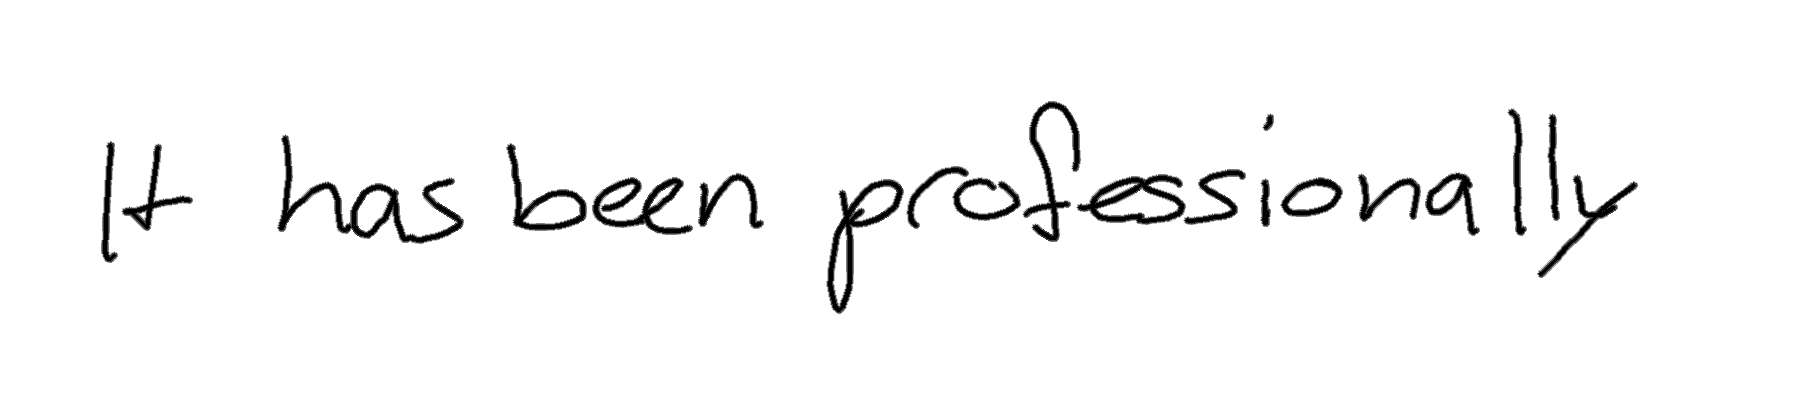 It has been professionally